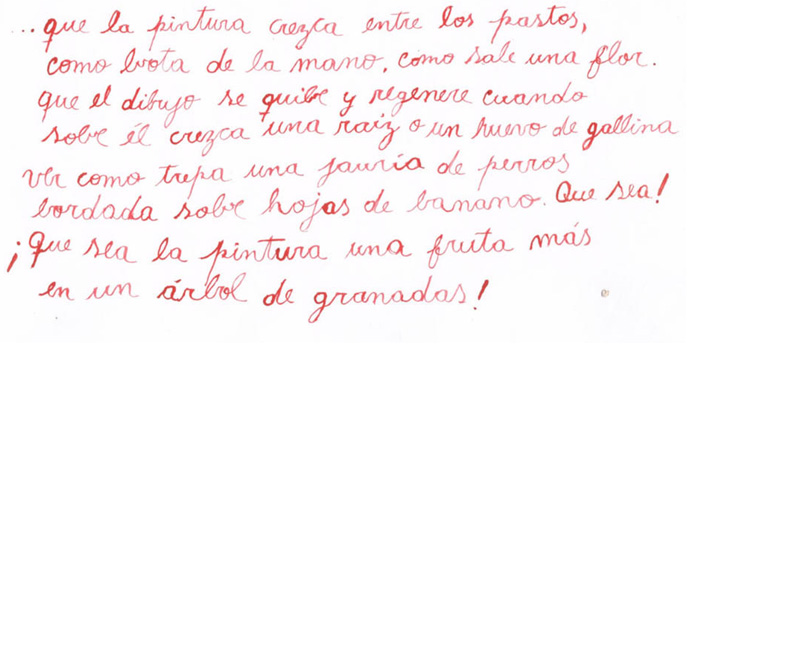 ...que la pintura crezca entre los pastos,
como brota de la mano, como sale una flor.
que el dibujo se quibre y regenere cuando
sobre él crezca una raíz o un huevo de gallina
ver como trepa una jauría de perros
bordada sobre hojas de banano. Que sea!
¡Que sea la pintura una fruta más
en un árbol de granadas!